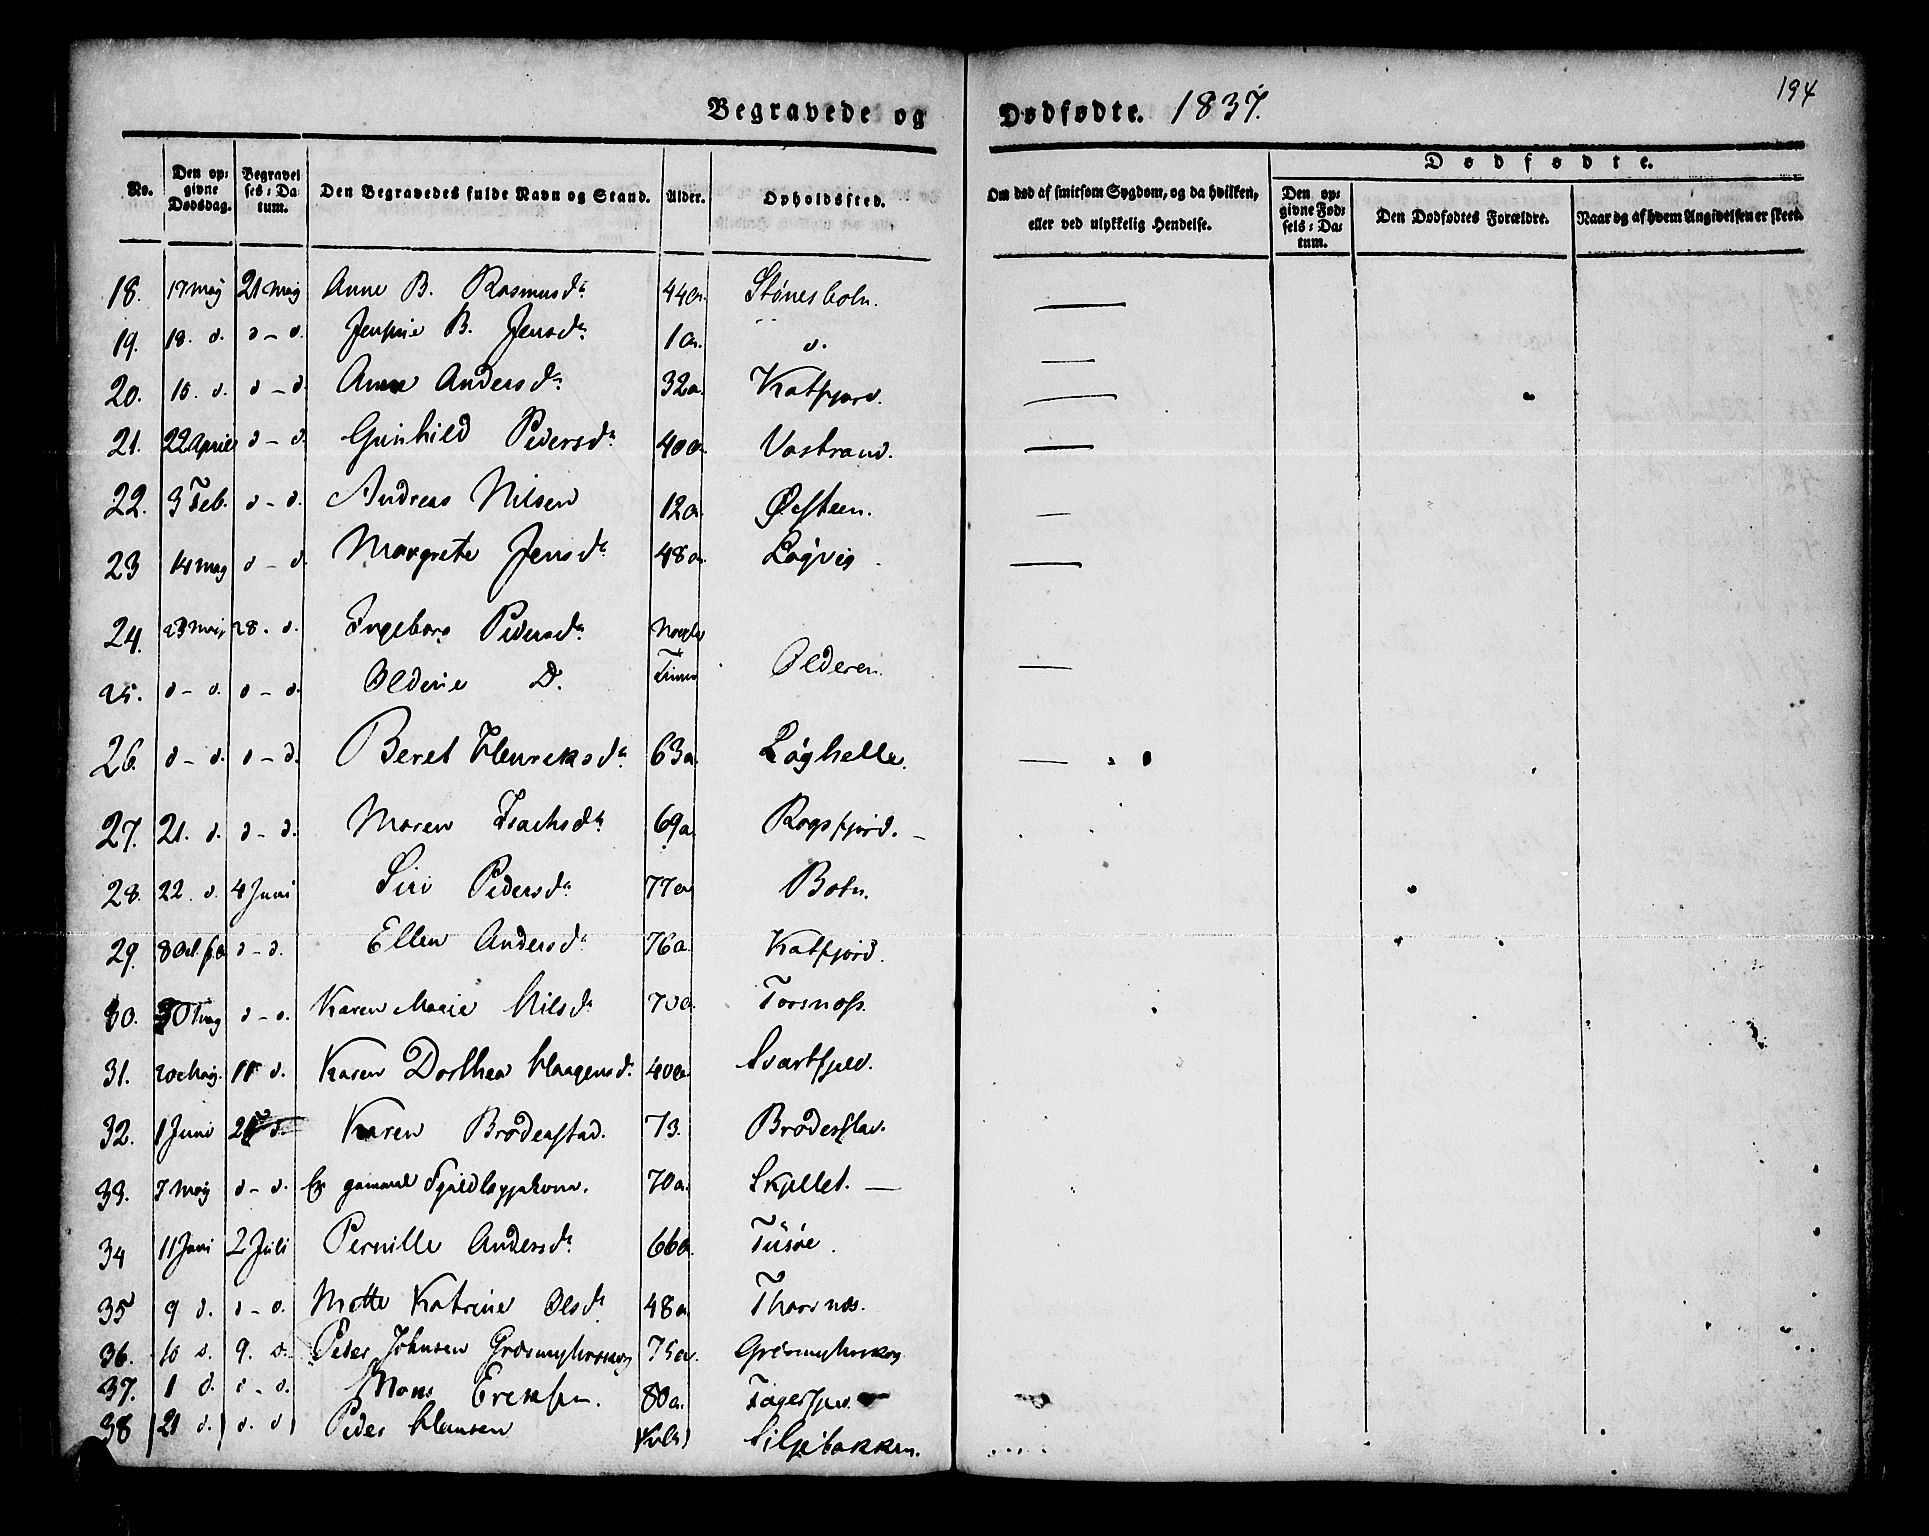 194
Begravede og Dødfødte. 1837.
No. Den opgivne Dødsdag. Begravelses-Datum. Den Begravedes fulde Navn og Stand. Alder. Opholdssted. Om død af smitsom Sygdom, og da hvilken, eller ved ulykkelig Hendelse. Dødfødte.
Den opgivne Fødsels-Datum. Den Dødfødtes Forældre. Naar og af hvem Angivelsen er skeet.
18. 17 May 21 May Anne B. Rasmusd. 44 a. Stønesbotn. —
19. 18. d. d - d. B. Jensd. 1 a. d. —
20. 15. d. d - d. Anne Andersd. 32 a. Katfjord. —
21. 22 April d - d. Gunhild Pedersd. 40 a. Vastrand. —
22. 3 Feb. d - d. Andreas Nilsen 12 a. —
23 14 May d - d. Margrete Jensd. 48 a. Løgvig. —
24. 23 May 28. d. Ingeborg Pedersd.
25. d - d. d - d. Olderie D. Olderen. —
26. d - d. d - d. Beret Henriksd. 63 a. Løghelle. —
27. 21. d. d - d. Maren Isachsd. 69 a. —
28. 22. d. 4 Juni Siri Pedersd. 77 a. Botn.
29. 8 Oct. d - d. Ellen Andersd. 76 a. Katfjord.
30. May d - d. Karen Marie Nilsd. 70 a. Torsnæss.
31. 20 May. 11 d. Karen Dorthea Haagensd. 40 a. Svartfjeld.
32. 1 Juni d. Karen Brodenstad. 73.
33. 7 May d - d. En gammel 70 a. —
34 11 Juni 2 Juli Pernille Andersd. 66 a. Tusøe.
35 9 d. d - d. Mette Katrine Olsd. 48 a. Thorsnæs.
36. 10 d. 9. d. Peder Johnsen 75 a.
37. 1 d. d - d. Mons Eriksen. 80 a.
38 21 d. d. d Peder Hansen Siljebakken.